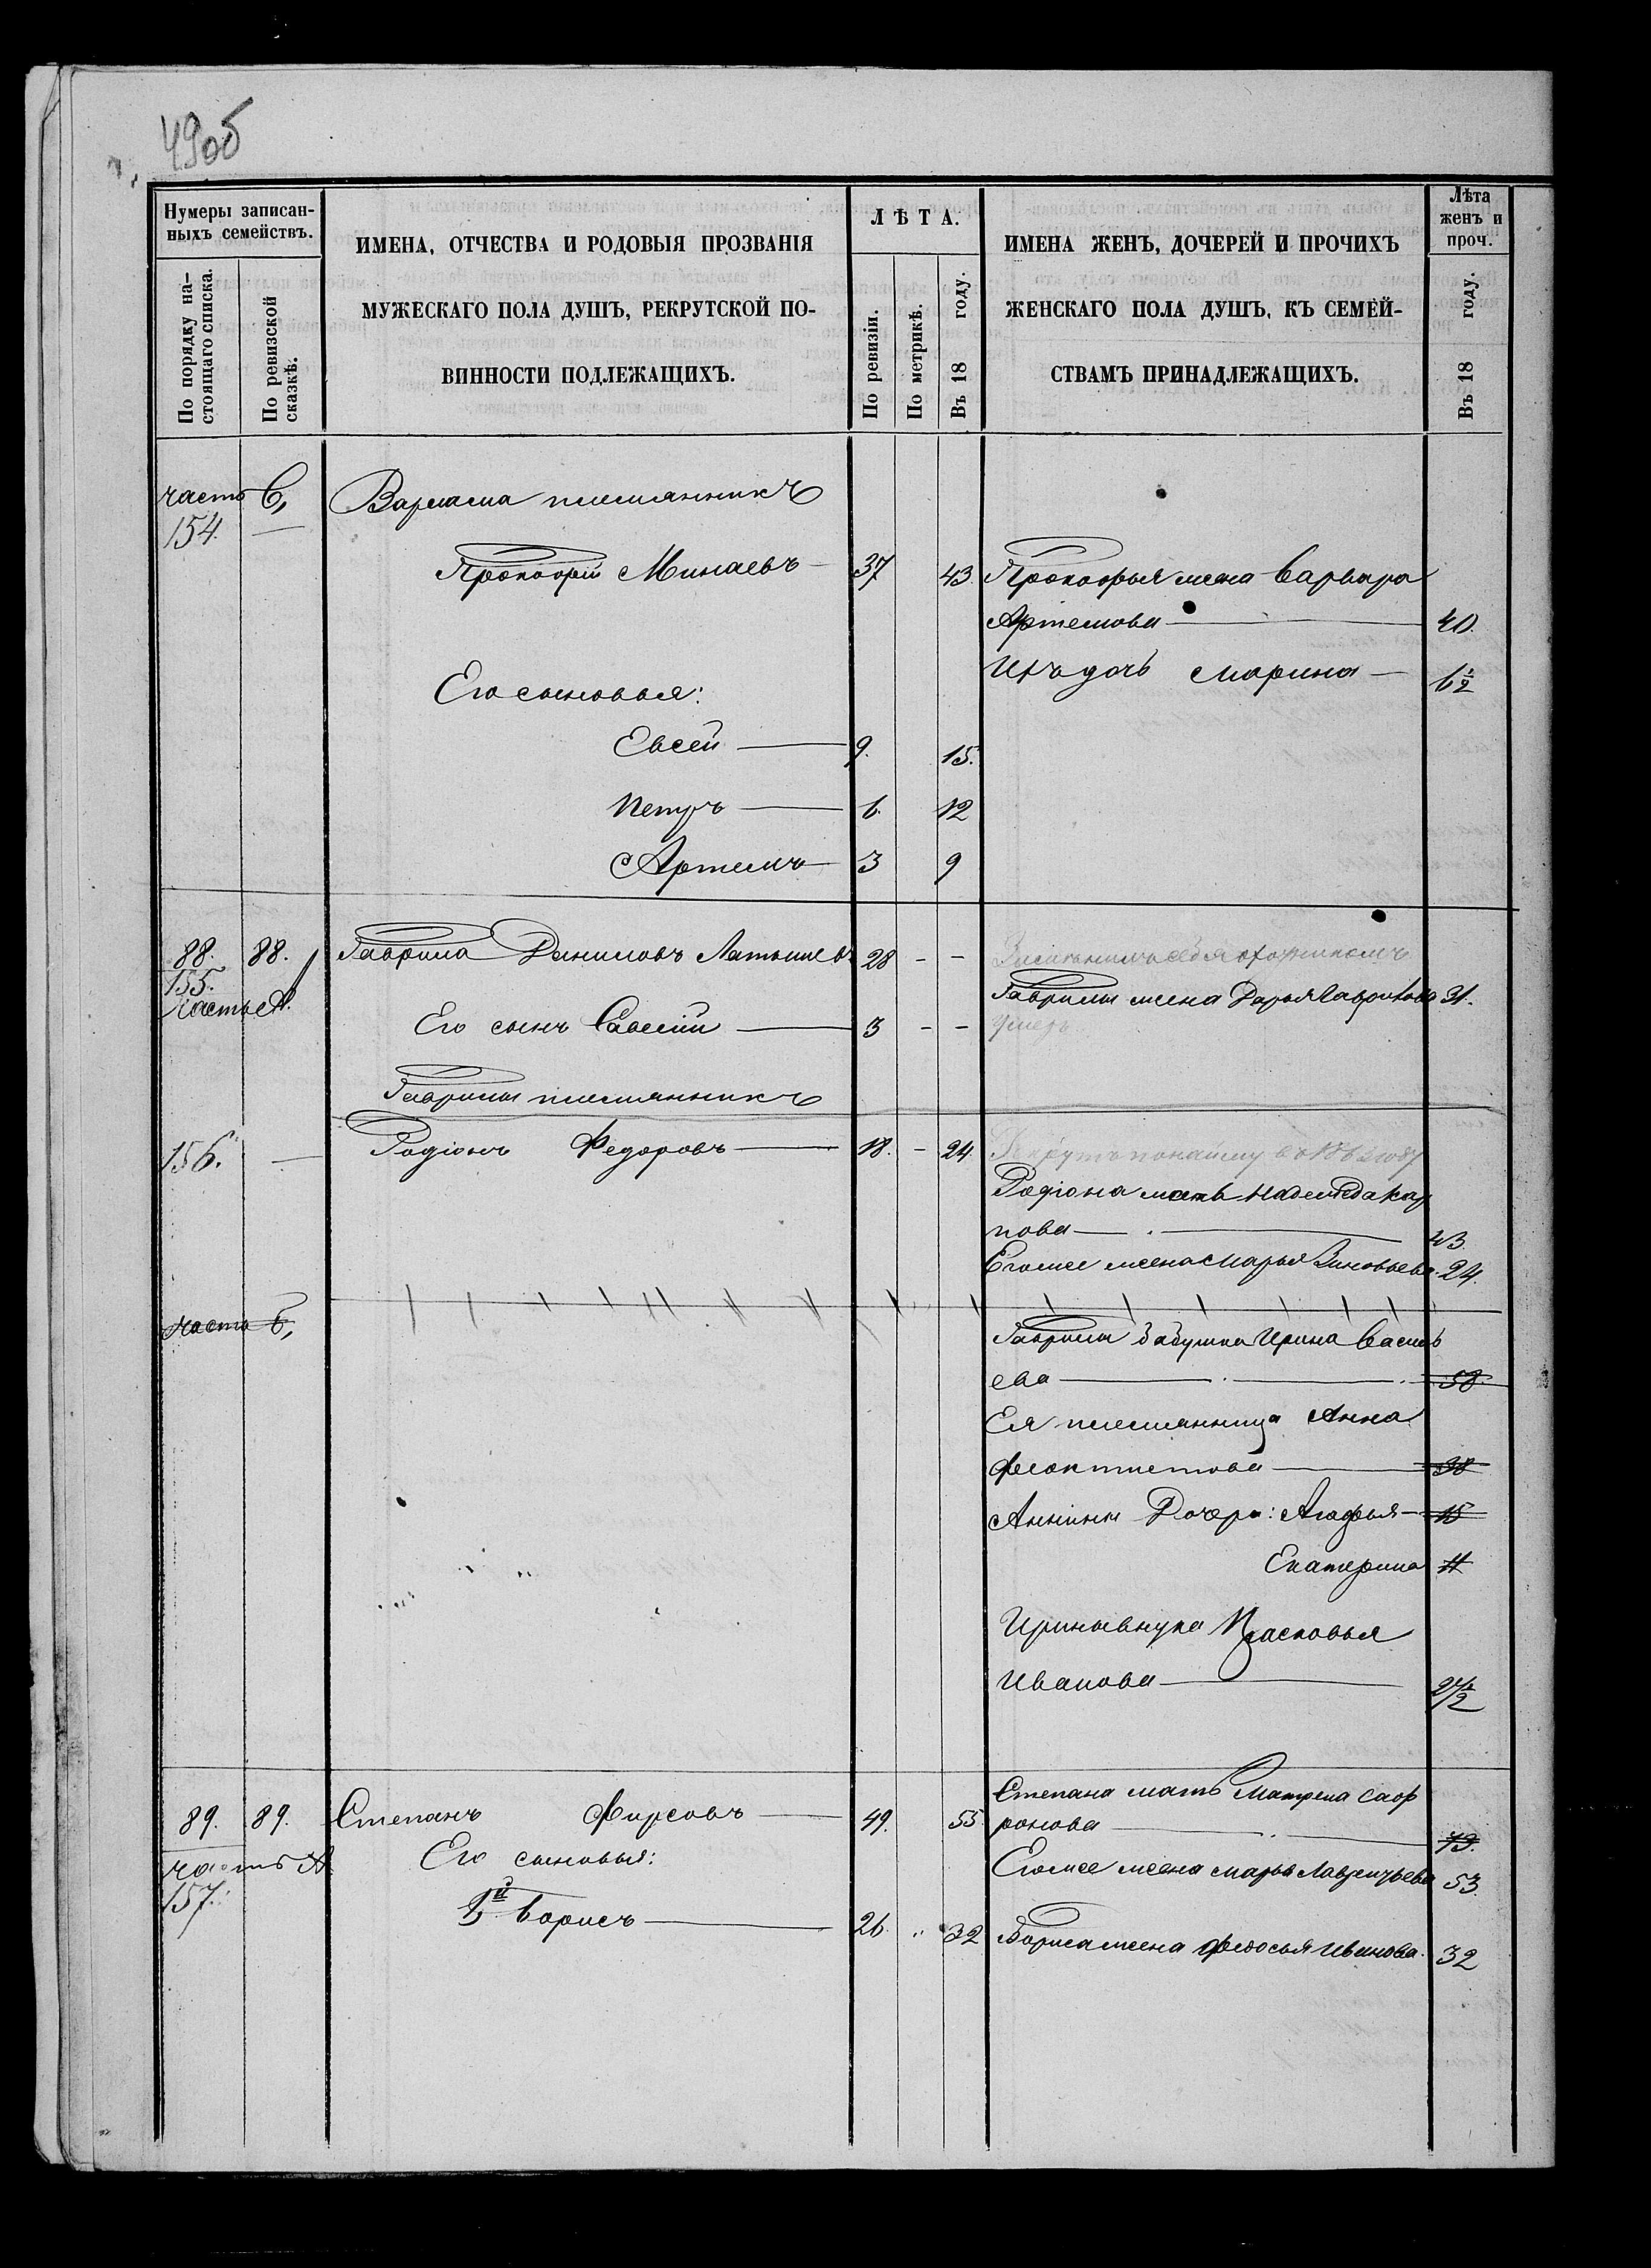 49об
Нумеры записан-
ныхъ семействъ.
По порядку на-
стоящаго списка.
По ревизской
сказкѣ.
ИМЕНА, ОТЧЕСТВА И РОДОВЫЯ ПРОЗВАНІЯ
МУЖЕСКАГО ПОЛА ДУШЪ, РЕКРУТСКОЙ ПО-
ВИННОСТИ ПОДЛЕЖАЩИХЪ.
ЛѢТА.
По ревизіи.
По метрикѣ.
Въ 18 году.
ИМЕНА ЖЕНЪ, ДОЧЕРЕЙ И ПРОЧИХЪ
ЖЕНСКАГО ПОЛА ДУШЪ, КЪ СЕМЕЙ-
СТВАМЪ ПРИНАДЛЕЖАЩИХЪ.
Лѣта
женъ и
проч.
Въ 18 году.
часть В, Варлама племянникъ
154. —
Прокофій Минаевъ — 37 43. Прокофья жена Варвара
Артемова — 40.
Ихъ дочь Марина — 6½
Его сыновья:
Евсей — 9. 15.
Петръ — 6. 12
Артемъ — 3 9
88. 88. Гаврила Даниловъ Латышевъ 28 - -
155. Гаврилы жена Дарья 31.
Часть А.
Его сынъ Савелій — 3 - - умеръ
Гаврилы племянникъ
156. — Родіонъ Федоровъ — 18. - 24. Рекрутъ по найму въ 1862 году
Родіона мать Надежда Кар
пова — 43.
Егоже жена Марья Зиновьева. 24.
часть б,
Гаврилы бабушка Ирина Василь
ева — 58.
Ея племянница Анна
Феоктистова — 38
Аннины Дочери: Агафья — 15
Екатерина 11
Ирины внука Прасковья
Иванова —
89. 89. Степанъ Фирсовъ — 49. 55. Степана мать Матрена Саф
ронова — 73.
часть А Его сыновья: Егоже жена Марья Лаврентьева 53.
157.
1й Борисъ — 26. „ 32 Бориса жена Федосья Иванова. 32